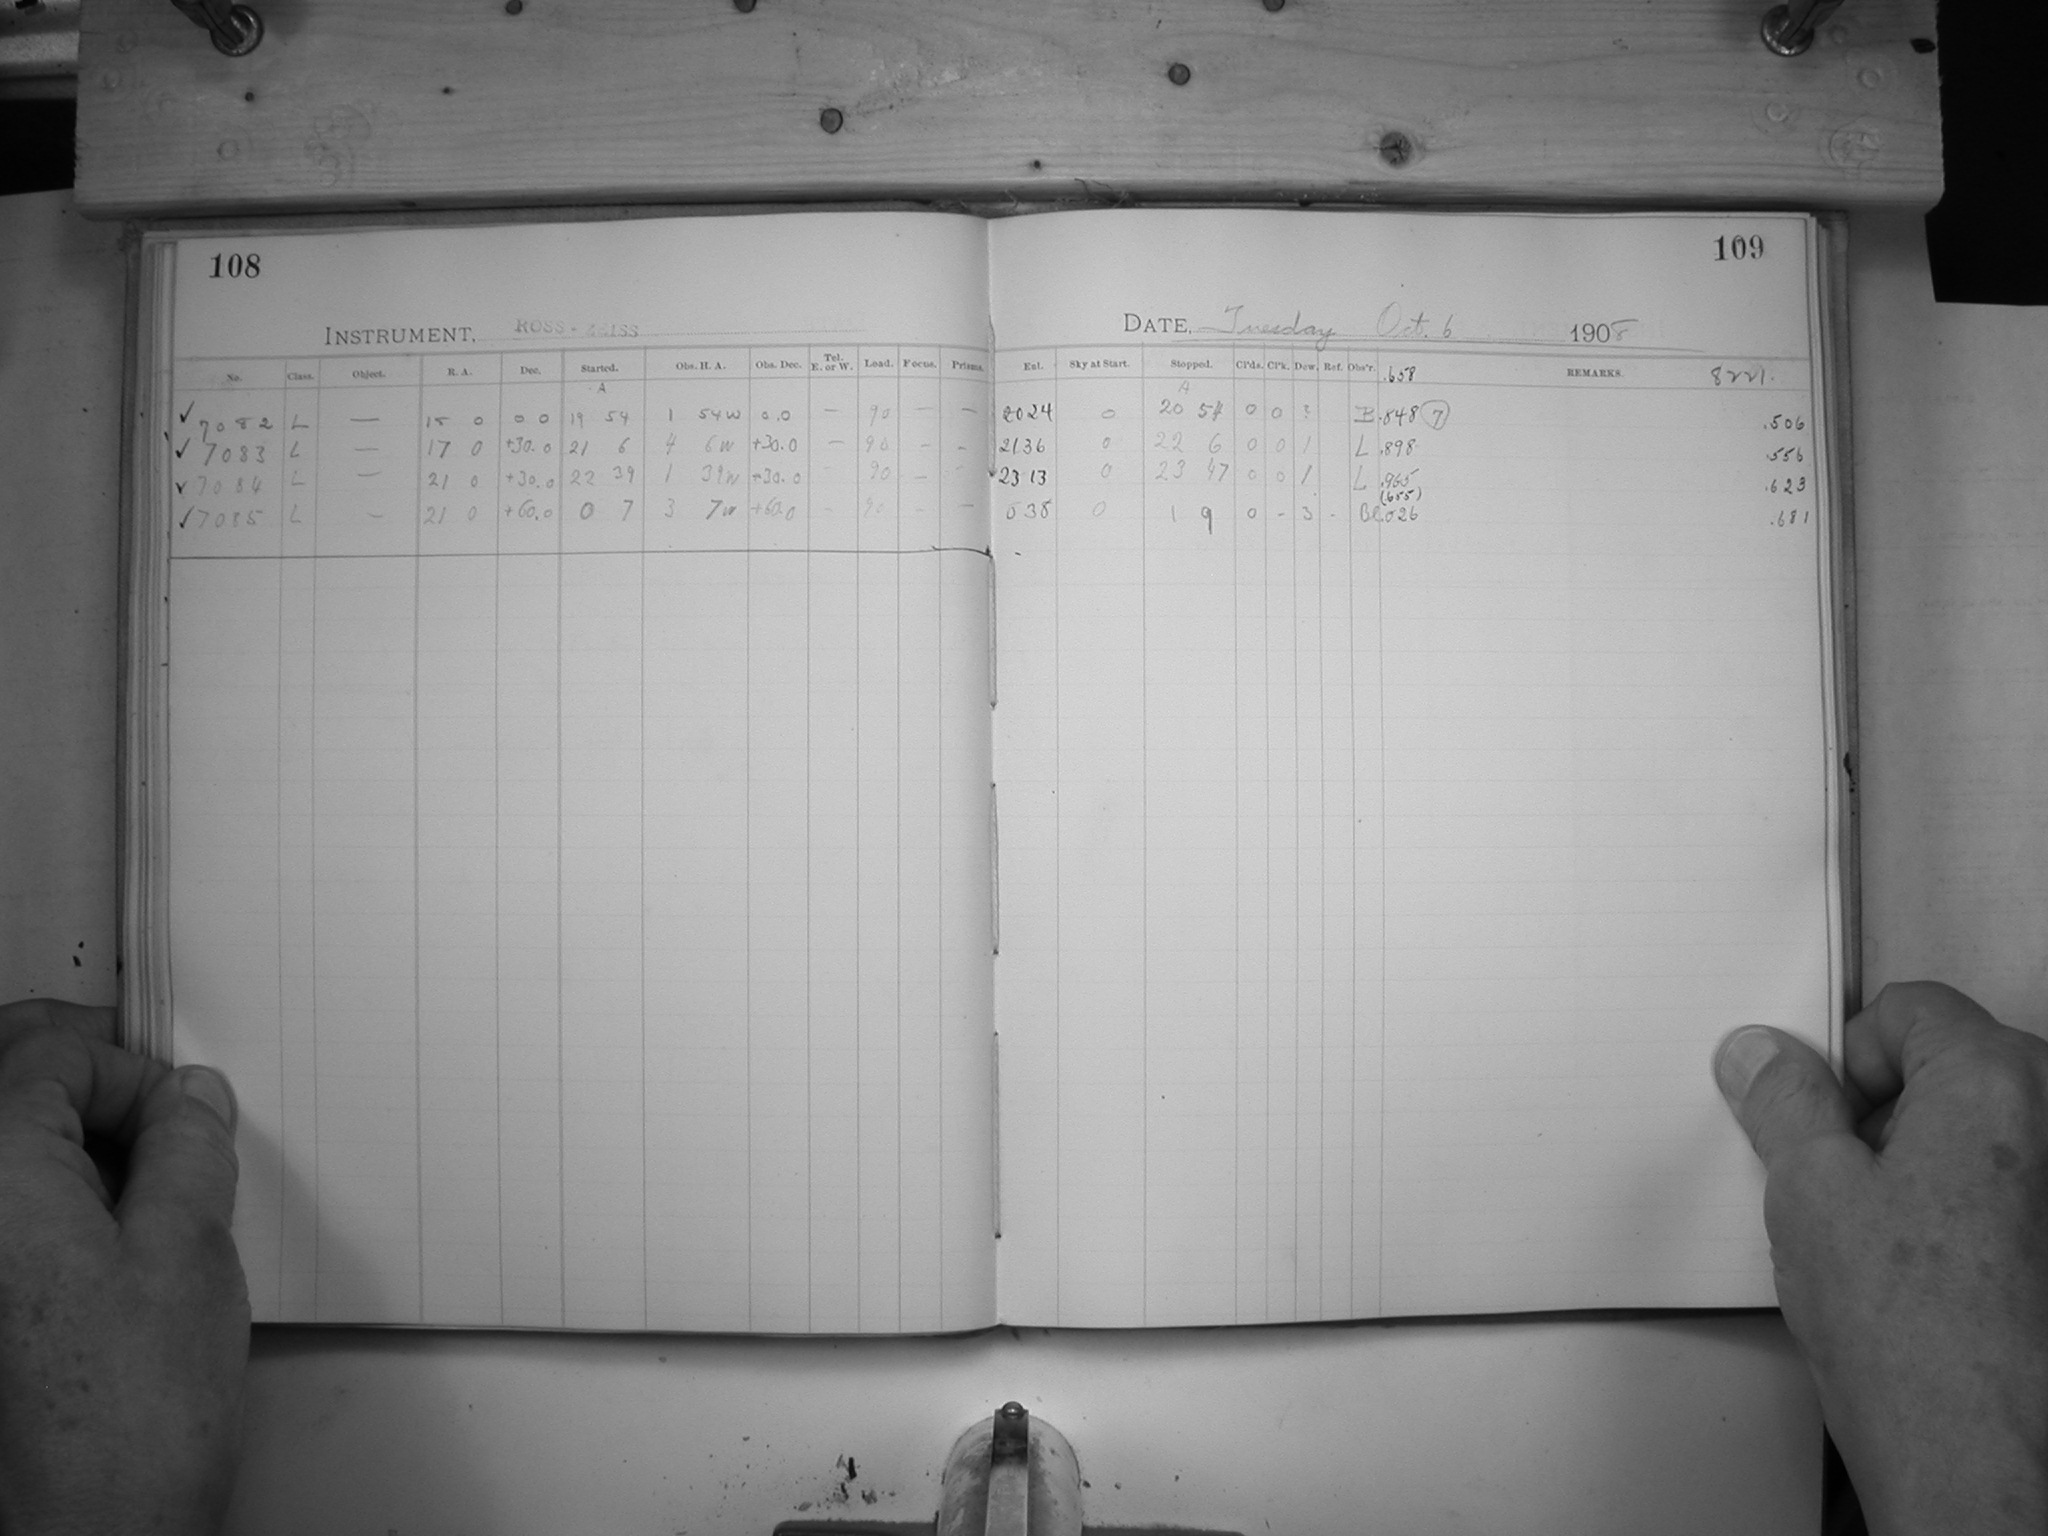 108
INSTRUMENT, ROSS-ZEISS
No. Class. Object. R. A. Dec. Started. Obs. H. A. Obs. Dec. Tel. E. or W. Load. Focus. Prisms.
A
✓ 7082 L — 18 0 0 0 19 54 1 54W 0.0 — 90 — —
✓ 7083 L — 17 0 +30.0 21 6 4 6W +30.0 — 90 — —
✓ 7084 L — 21 0 +30.0 22 39 1 39W +30.0 - 90 — -
✓ 7085 L — 21 0 +60.0 0 7 3 7W +60.0 - 90 - —
109
DATE, Tuesday Oct. 6 1908
Ent. Sky at Start. Stopped. Cl'ds. Cl'k. Dew. Ref. Obs'r. .658 REMARKS. 8221.
A
2024 0 20 54 0 0 ? B .848 (7) .506
2136 0 22 6 0 0 1 L .898 .556
2313 0 23 47 0 0 1 L .965 .623
(.655)
038 0 1 9 0 - 3 - Bl .026 .681